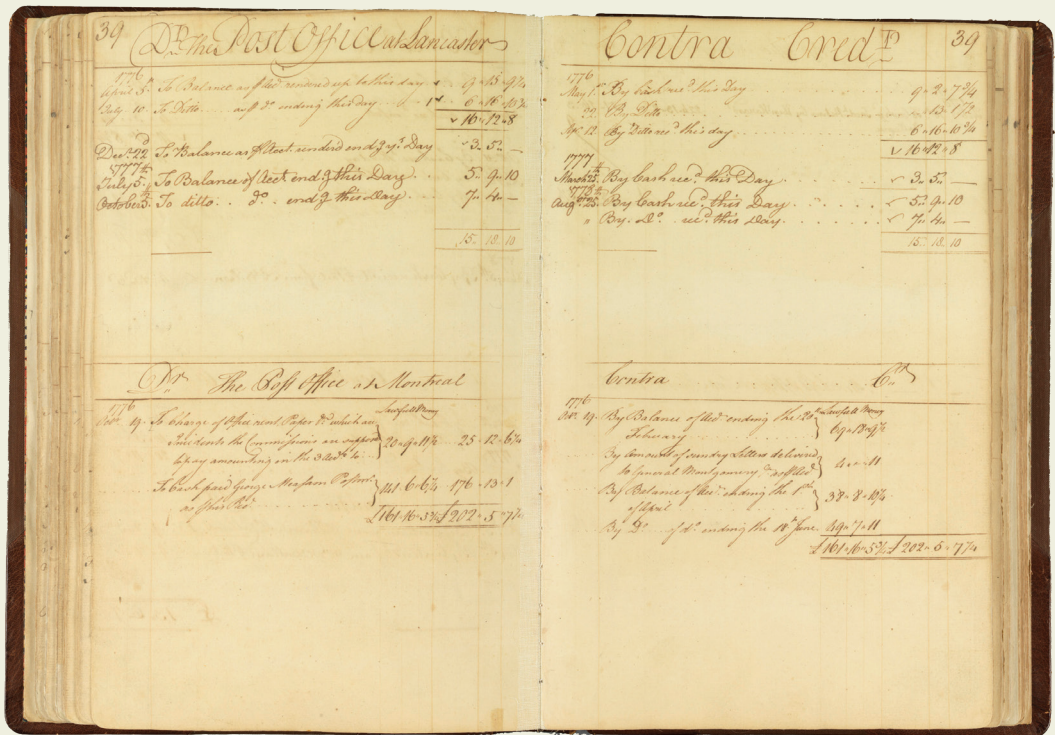 39 Dr. the Post Office at Lancaster
1776
April 5 To Balance as pr. Acct. rendered up to this day 9 - 15 - 9 1/4
July 10 To Ditto as pr. do. ending this day 6 - 16 - 10 3/4
16 - 12 - 8
Decr. 22d To Balance as pr. Acct. rendered endg. ys. Day 3 - 5 -
1777
July 5 To Balance of Acct endg this Day 5 - 9 - 10
October 5 To ditto do. endg this day 7 - 4 -
15 - 18 - 10
Dr. The Post Office at Montreal
1776
19 To Charge of Office rent, Paper &c. which an Lawfull Mony
Incidents the Commissions an support
to pay amounting in the 3 Accts. to 25 - 12 - 6 1/4
To Cash paid George Measam Postmr. 141 - 6 - 6 1/4 176 - 13 - 1
as pr. his Rect.
£161 - 16 - 5 3/4 £202 - 5 - 7 1/4
Contra Credr. 39
1776
May 1st By Cash recd. this Day 9 - 2 - 7 3/4
29 By Ditto 13 - 1 1/2
12 By Ditto recd. this day 6 - 16 - 10 3/4
16 - 12 - 8
1777
March 25 By Cash recd. this Day 3 - 5 -
1778
Augt. 25 By Cash recd. this Day 5 - 9 - 10
" By Do. recd. this Day 7 - 4 -
15 - 18 - 10
Contra Cr.
1776
19 By Balance of Acct. ending the 20th Lawfull Mony
February 69 - 18 - 9 1/2
By Amount of sundry Letters delivered
to General Montgomery, 4 - " - 11
By Balance of Acct. ending the 1st 38 - 8 - 10 1/4
of April
By Do. of do. ending the 18th June 49 - 7 - 11
£161 - 16 - 5 3/4 £202 - 5 - 7 1/4